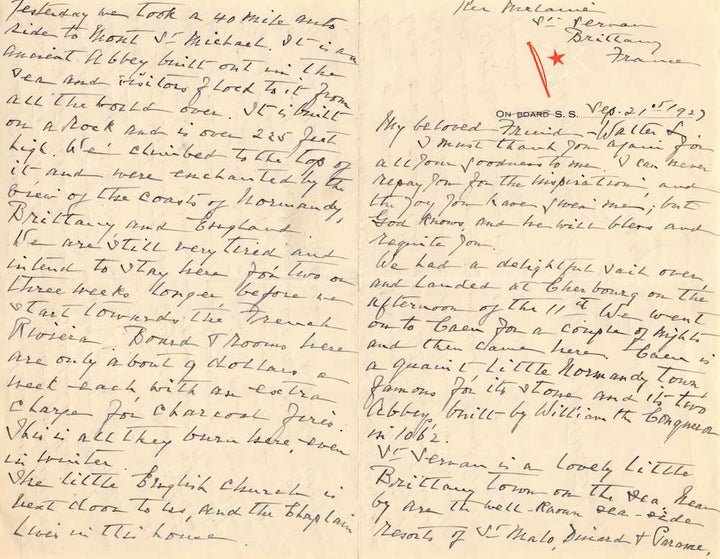 Ker Melanie
St Servan
Brittany
France
ON BOARD S.S. Sep. 21st 1927
My beloved Friend Walter
I must thank you again for
all your goodness to me I can never
repay you for the inspiration, and
the joy you have given me; but
God knows, and he will bless and
requite you.
We had a delightful sail over
and landed at Cherbourg on the
afternoon of the 11th We went
on to Caen for a couple of nights
and then came here. Caen is
a quaint little Normandy town
famous for its stone and its two
Abbey built by William the Conqueror
in 1062.
St Servan is a lovely little
Brittany town on the sea. Near
by are the well-known sea-side
resorts of St Malo, Dinard & Parame,
Yesterday we took a 40 mile auto
ride to Mont St Michael. It is an
ancient Abbey built out in the
sea and visitors flock to it from
all the world over. It is built
on a rock and is over 225 feet
high. We climbed to the top of
it and were enchanted by the
view of the coasts of Normandy,
Brittany and England
We are still very tired and
intend to stay here for two or
three weeks longer before we
start towards the French
Riviera. Board & rooms here
are only about 9 dollars a
week-each with an extra
charge for charcoal fires.
This is all they burn here, even
in winter
The little English church is
next door to us, and the Chaplain
lives in this house